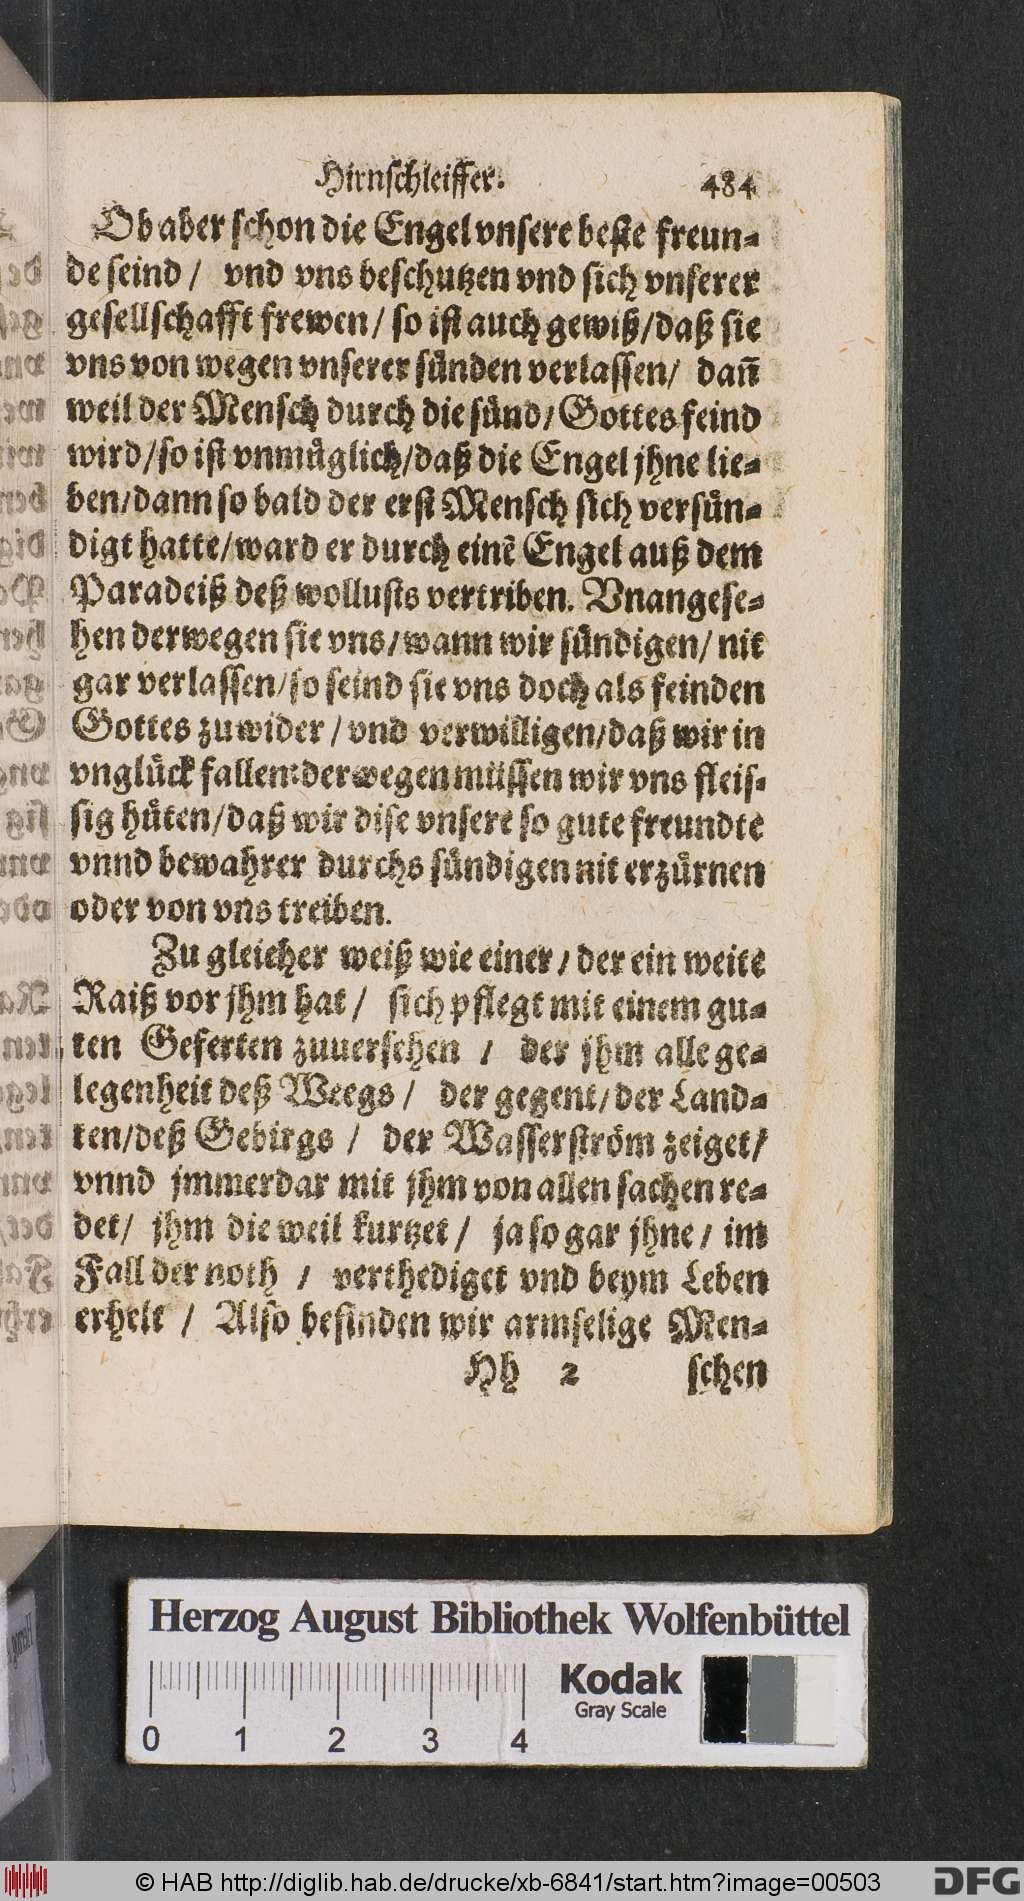 Hirnschleiffer. 484
Ob aber schon die Engel vnsere beste freun-
de seind / vnd vns beschutzen vnd sich vnserer
gesellschafft frewen / so ist auch gewiß / daß sie
vns von wegen vnserer sünden verlassen / dañ
weil der Mensch durch die sünd / Gottes feind
wird / so ist vnmüglich / daß die Engel jhne lie-
ben / dann so bald der erst Mensch sich versün-
digt hatte / ward er durch einẽ Engel auß dem
Paradeiß deß wollusts vertriben. Vnangese-
hen derwegen sie vns / wann wir sündigen / nit
gar verlassen / so seind sie vns doch als feinden
Gottes zuwider / vnd verwilligen / daß wir in
vnglück fallen: derwegen müssen wir vns fleis-
sig hüten / daß wir dise vnsere so gute freundte
vnnd bewahrer durchs sündigen nit erzürnen
oder von vns treiben.
Zu gleicher weiß wie einer / der ein weite
Raiß vor jhm hat / sich pflegt mit einem gu-
ten Geferten zuuersehen / der jhm alle ge-
legenheit deß Weegs / der gegent / der Land-
ten / deß Gebirgs / der Wasserström zeiget /
vnnd jmmerdar mit jhm von allen sachen re-
det / jhm die weil kurtzet / ja so gar jhne / im
Fall der noth / verthediget vnd beym Leben
erhelt / Also befinden wir armselige Men-
Hh 2 schen
Herzog August Bibliothek Wolfenbüttel
Kodak
Gray Scale
0 1 2 3 4
© HAB http://diglib.hab.de/drucke/xb-6841/start.htm?image=00503
DFG